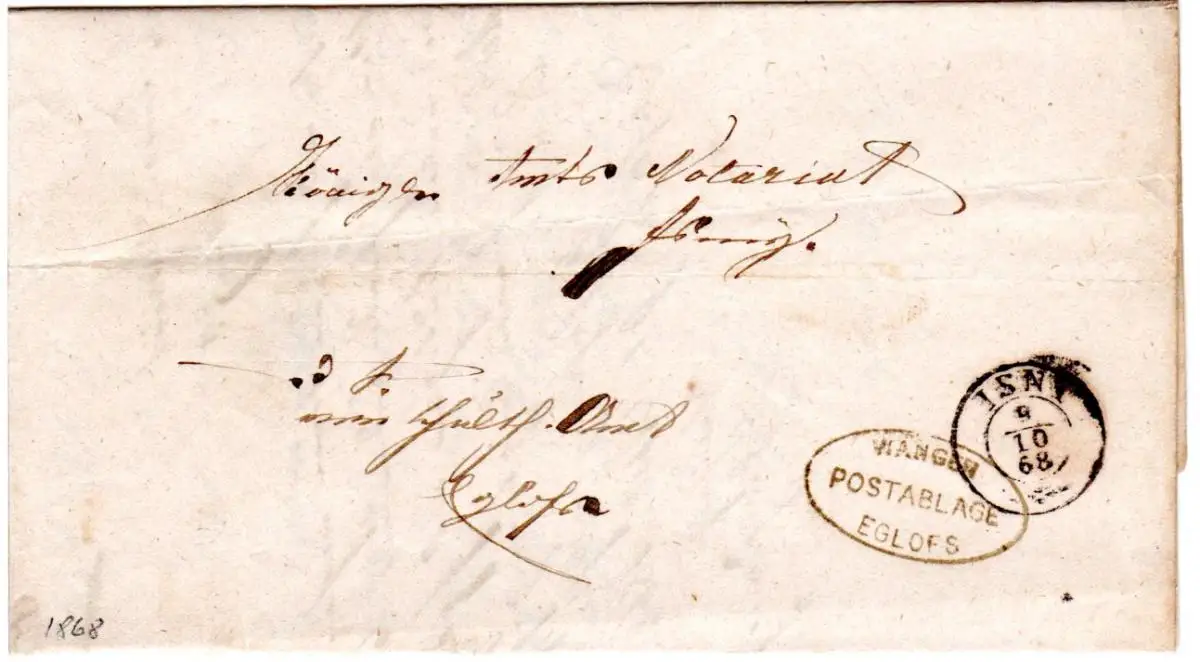 Amts Notariat
Isny.
Schulth. Amt
Eglofs
ISNY
9
10
68
WANGEN
POSTABLAGE
EGLOFS
1868